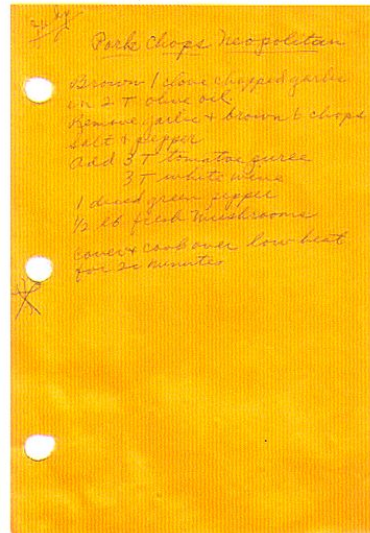 Pork Chops Neopolitan
Brown 1 clove chopped garlic
in 2 T olive oil
Remove garlic + brown 6 chops
salt & pepper
Add 3 T tomatoe puree
3 T white wine
1 diced green pepper
1/2 lb fresh mushrooms
cover & cook over low heat
for 20 minutes